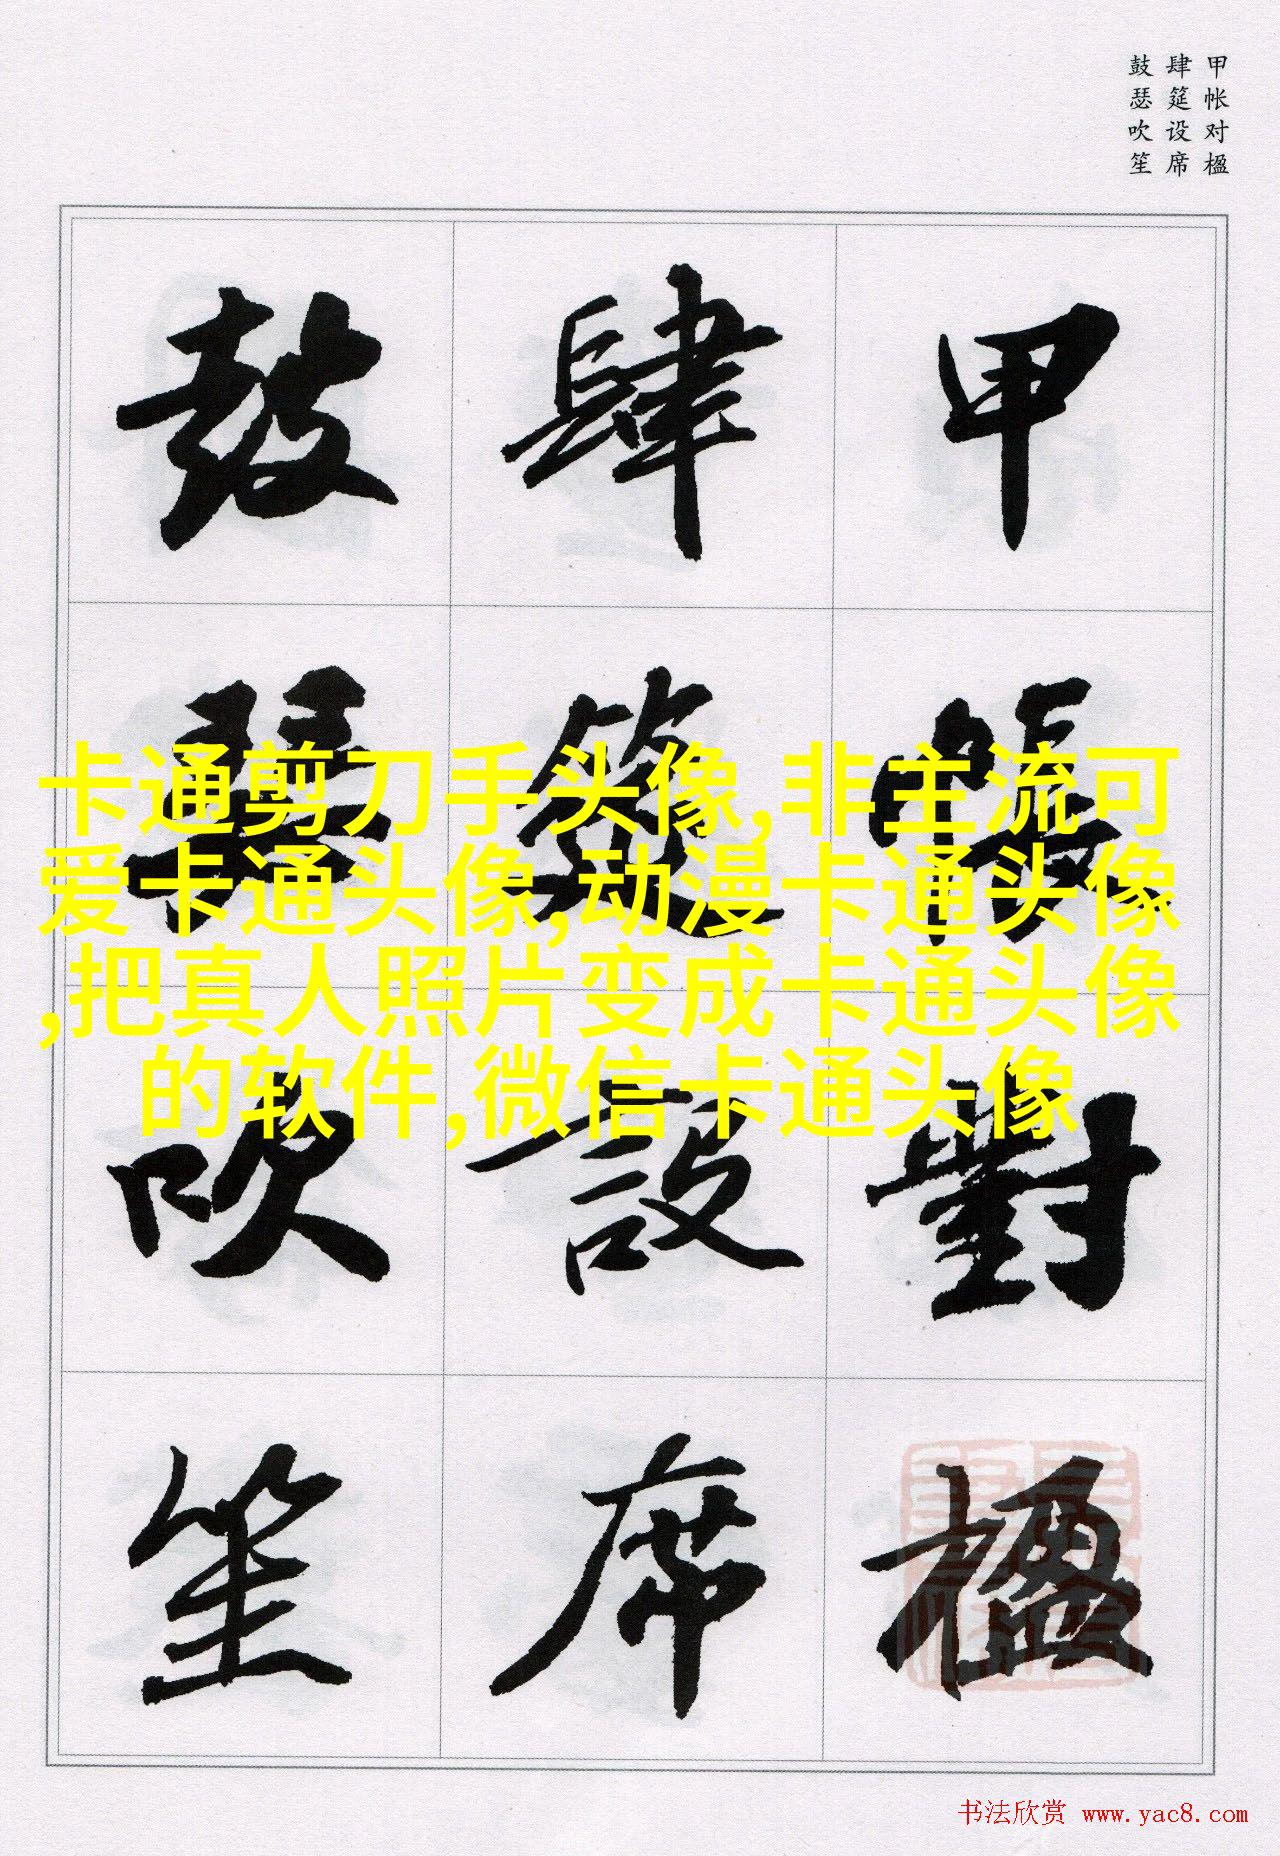 甲帐对楹
肆筵设席
鼓瑟吹笙
甲帳對楹
肆筵設席
鼓瑟吹笙
卡通剪刀手头像,非主流可
爱卡通头像,动漫卡通头像
,把真人照片变成卡通头像
的软件,微信卡通头像
书法欣赏 www.yac8.com